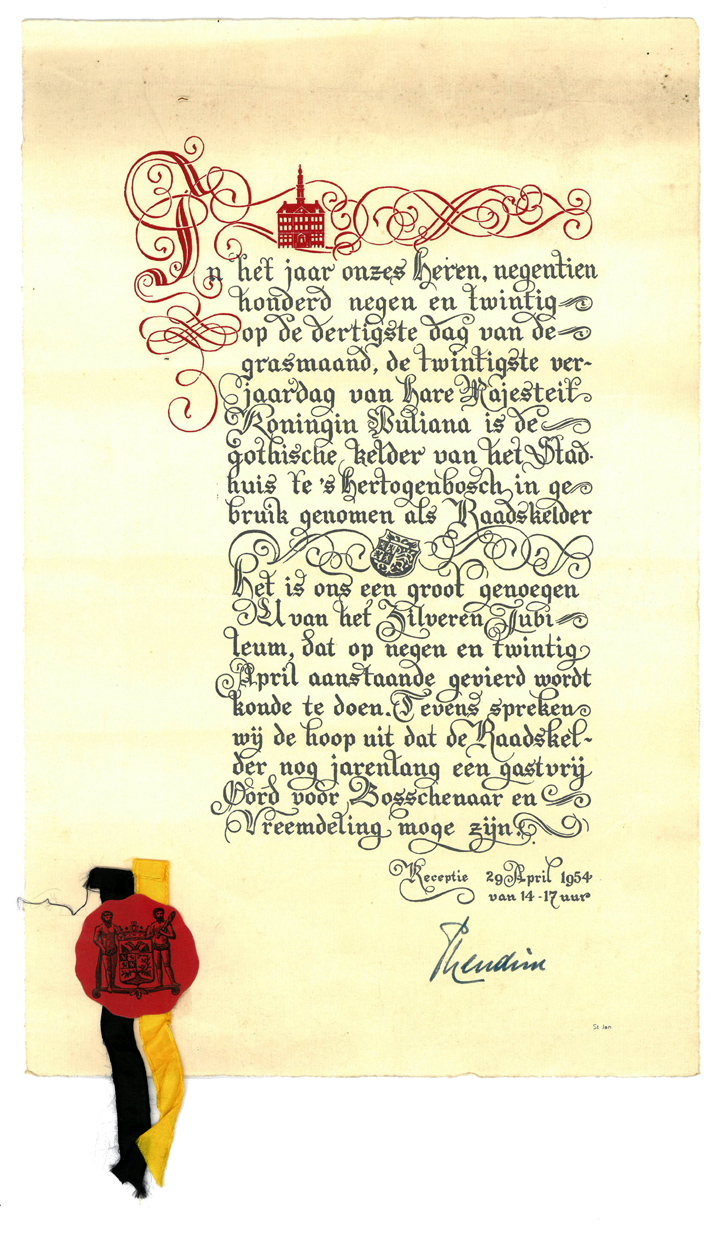 In het jaar onzes Heren, negentien
honderd negen en twintig
op de dertigste dag van de
grasmaand, de twintigste ver-
jaardag van Hare Majesteit
Koningin Juliana is de
gothische kelder van het Stad-
huis te 's Hertogenbosch in ge
bruik genomen als Raadskelder
Het is ons een groot genoegen
U van het Zilveren Jubi-
leum, dat op negen en twintig
April aanstaande gevierd wordt
konde te doen. Tevens spreken
wij de hoop uit dat de Raadskel-
der nog jarenlang een gastvrij
Oord voor Bosschenaar en
Vreemdeling moge zijn.
Receptie 29 April 1954
van 14-17 uur
St Jan